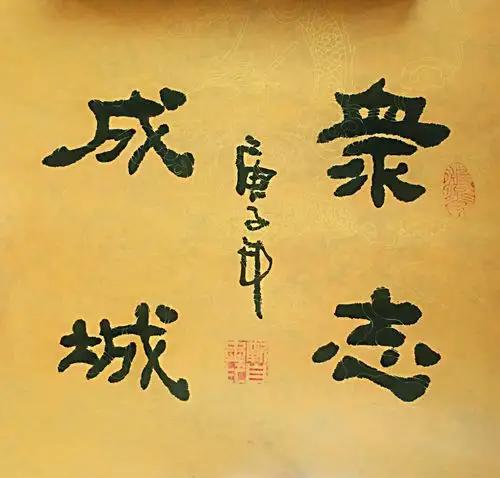 衆志
成城
庚子年